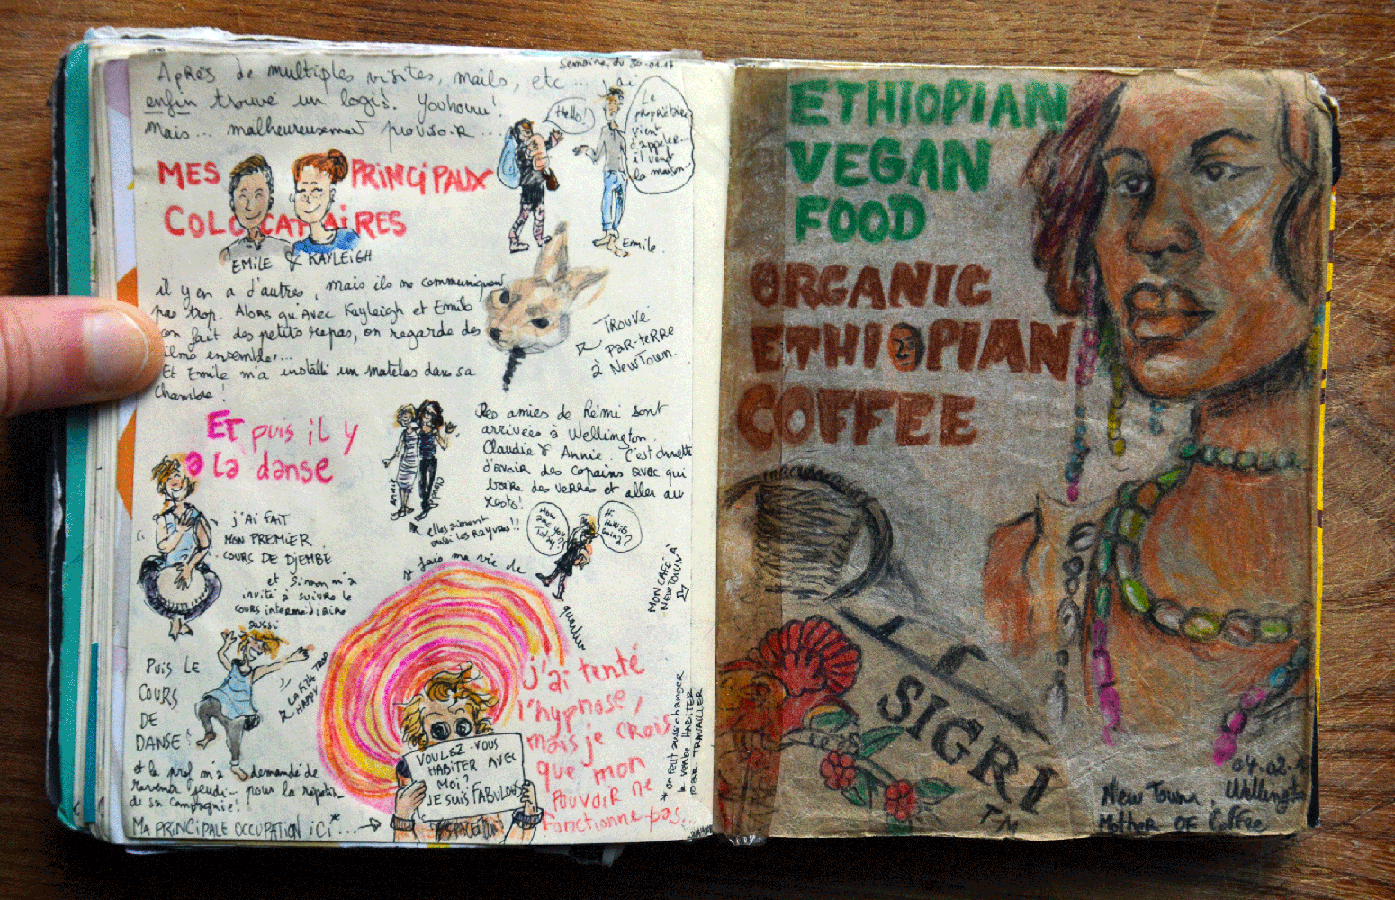 Semaine du 30.01.17
Après de multiples visites, mails, etc... j'ai
enfin trouvé un logis. Youhouu!
Mais... malheureusement provisoir...
Hello!
Le
propriétaire
vient
d'appeler
il vend
la maison
Emile.
MES PRINCIPAUX
COLOCATAIRES
EMILE & KAYLEIGH
il y en a d'autres, mais ils ne communiquent
pas trop. Alors qu'avec Kayleigh et Emile
on fait des petits repas, on regarde des
films ensemble...
Et Emile m'a installé un matelas dans sa
chambre!
Trouvé
par-terre
à NewTown.
ET puis il y
a la danse
Des amies de Rémi sont
arrivées à Wellington.
Claudia & Annie. C'est chouette
d'avoir des copains avec qui
boire des verres et aller au
resto!
Annie
elles aiment
aussi les rayures!!
J'AI FAIT
MON PREMIER
COURS DE DJEMBÉ
et Simon m'a
invité à suivre le
cours intermédiaire
aussi
How
are you
today?
je fais ma vie de
quartier
MON CAFÉ À
NEWTOWN
PUIS LE
COURS
DE
DANSE!
LA FILLE TROP
HAPPY
et la prof m'a demandé de
revenir jeudi... pour la répétition
de sa compagnie!
MA PRINCIPALE OCCUPATION ICI*...
VOULEZ-VOUS
HABITER AVEC
MOI?
JE SUIS FABULOUS
j'ai tenté
l'hypnose,
mais je crois
que mon
pouvoir ne
fonctionne pas...
* on peut aussi changer
le verbe HABITER
par TRAVAILLER
ETHIOPIAN
VEGAN
FOOD
ORGANIC
ETHIOPIAN
COFFEE
SIGRI
TM
04.02.
New Town, Wellington
Mother of Coffee